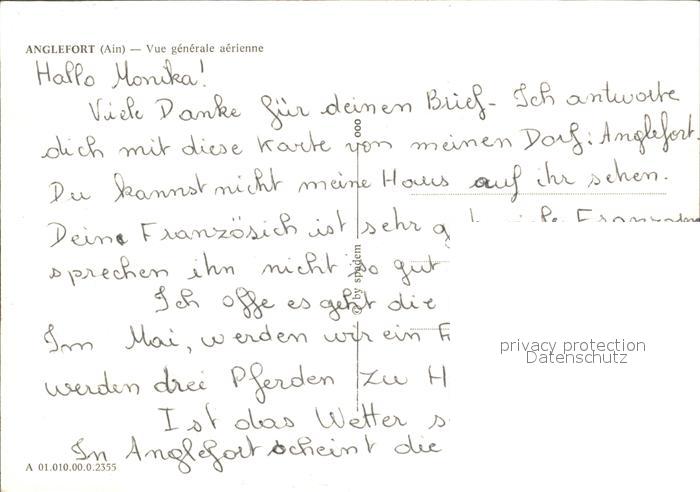 ANGLEFORT (Ain) — Vue générale aérienne
Hallo Monika!
Viele Danke für deinen Brief. Ich antworte
dich mit diese Karte von meinen Dorf: Anglefort.
Du kannst nicht meine Haus auf ihr sehen.
Deine Französich ist sehr
sprechen ihn nicht so gut
Ich offe es geht die
Im Mai, werden wir ein
werden drei Pferden zu H
Ist das Wetter s
In Anglefort scheint die
ooo
© by spadem
privacy protection
Datenschutz
A 01.010.00.0.2355